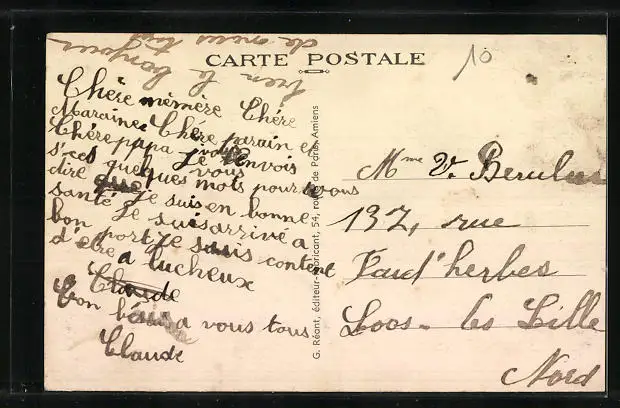 bien le bonjour
de nous tous
CARTE POSTALE
10
Chère mémère Chère
Maraine Chère parain et
Chère papa je vous envois
s'ces quelques mots pour vous
dire que je suis en bonne
santé Je suis arrivé a
bon port Je suis content
d'être a Lucheux
Claude
bon a vous tous
Claude
G. Réant, éditeur-fabricant, 54, de Paris, Amiens
Mme V.
137, rue
d'herbes
Loos-les Lille
Nord